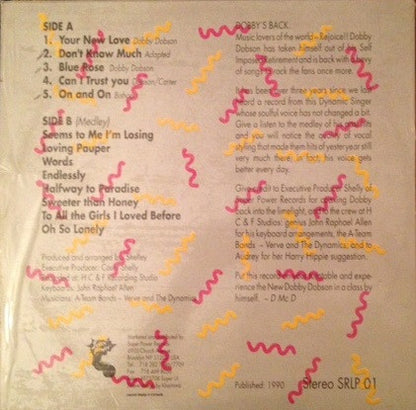 SIDE A
1. Your New Love Dobby Dobson
2. Don't Know Much Adapted
3. Blue Rose Dobby Dobson
4. Can I Trust you Dobson/Carter
5. On and On
SIDE B (Medley)
Seems to Me I'm Losing
Loving Pauper
Words
Endlessly
Halfway to Paradise
Sweeter than Honey
To All the Girls I Loved Before
Oh So Lonely
Produced and arranged by Shelley
Executive Producer: Shelley
at: H.C & F Recording Studio
Keyboards: John Raphael Allen
Musicians: A-Team Bands – Verve and The Dynamics
Marketed and Distributed by
Super Power Records
Church Avenue
Brooklyn NY USA
Tel: 718 282
Fax: 718 469
DOBBY'S BACK.
Music lovers of the world – Rejoice!! Dobby
Dobson has taken himself out of Self
Imposed Retirement and is back with
of songs to rock the fans once more.
It has been over three years since we last
heard a record from this Dynamic Singer
whose soulful voice has not changed a bit.
Give a listen to the medley of his
and you will notice the of vocal
styling that made them hits of yesteryear still
very much there. In fact, his voice gets
better every day.
Give to Executive Producer Shelley of
Power Records for bringing Dobby
back into the limelight, and the crew at H
C & F Studios: genius John Raphael Allen
for his keyboard arrangements, the A-Team
Bands – Verve and The Dynamics and to
Audrey for her Harry Hippie suggestion.
Put this record on the turntable and expe-
rience the New Dobby Dobson in a class by
himself. – D Mc D
Published: 1990 Stereo SRLP 01